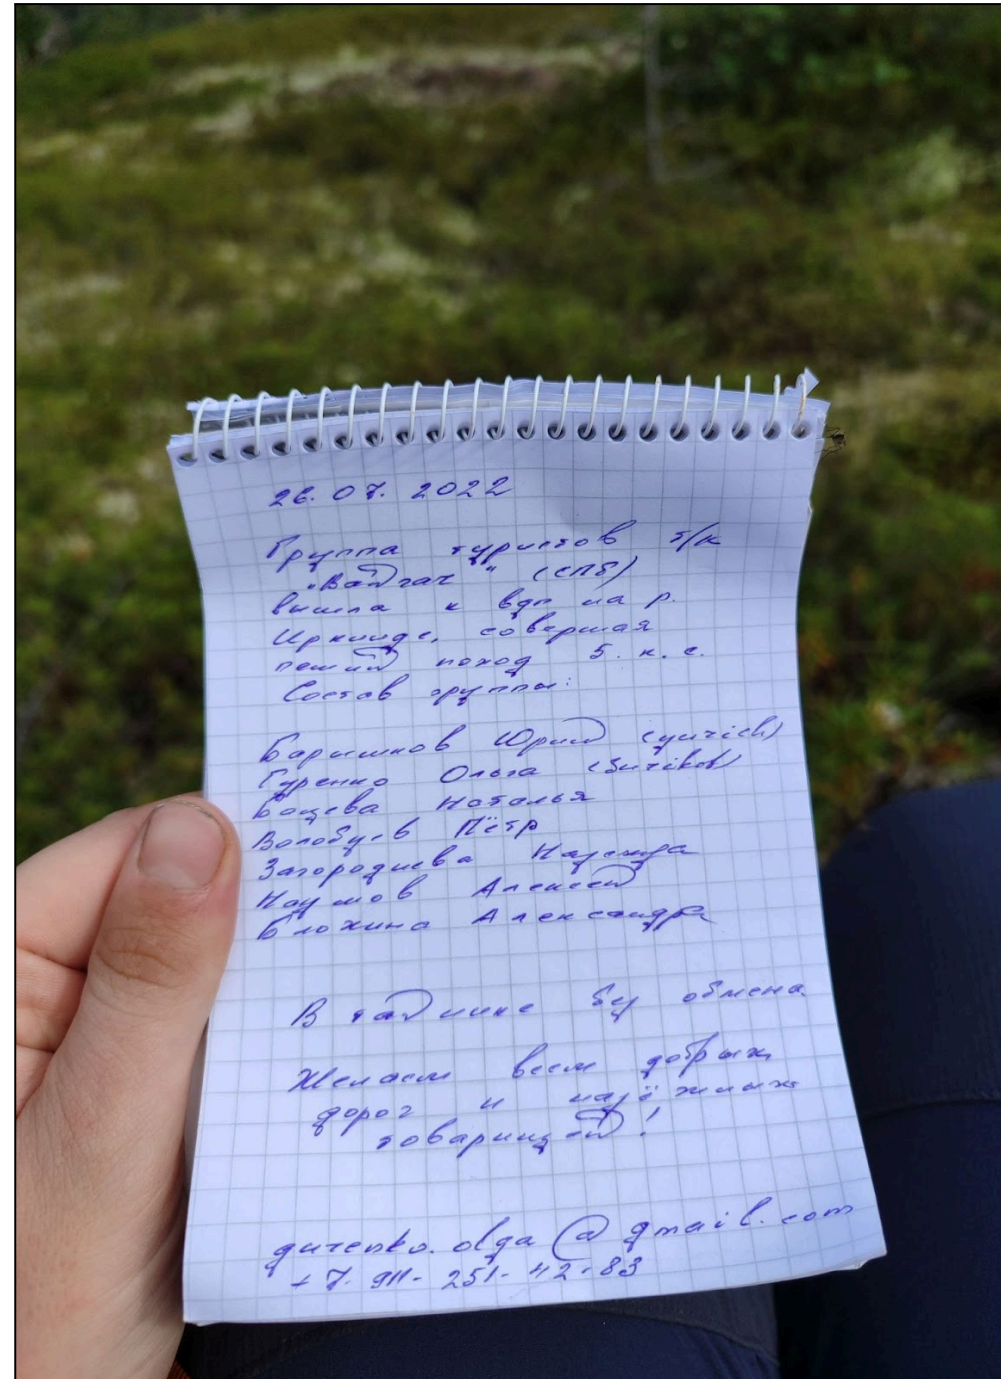 26.07.2022
Группа туристов т/к
"Вайгач" (СПб)
вышла к вдп на р.
Иркинде, совершая
пеший поход 5 к.с.
Состав группы:
Барышков Юрий (yurich)
Гуренко Ольга
Бощева Наталья
Волобуев Пётр
Загороднева Надежда
Наумов Алексей
Блохина Александра
В тайнике б/у обмена
Желаем всем добрых
дорог и надёжных
товарищей!
gurenko.olga@gmail.com
+7-911-251-42-83